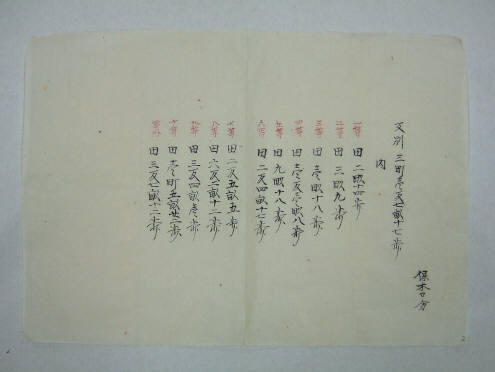 保木口分
反別 三町壱反七畝十七歩
内
一等 田 二畝十四歩
二等 田 三畝九歩
三等 田 壱畝十八歩
四等 田 壱反壱畝八歩
五等 田 九畝十八歩
六等 田 二反四畝十七歩
七等 田 二反五畝五歩
八等 田 六反二畝十二歩
九等 田 三反四畝壱歩
十等 田 壱町五畝廿二歩
等外 田 三反七畝十三歩
2